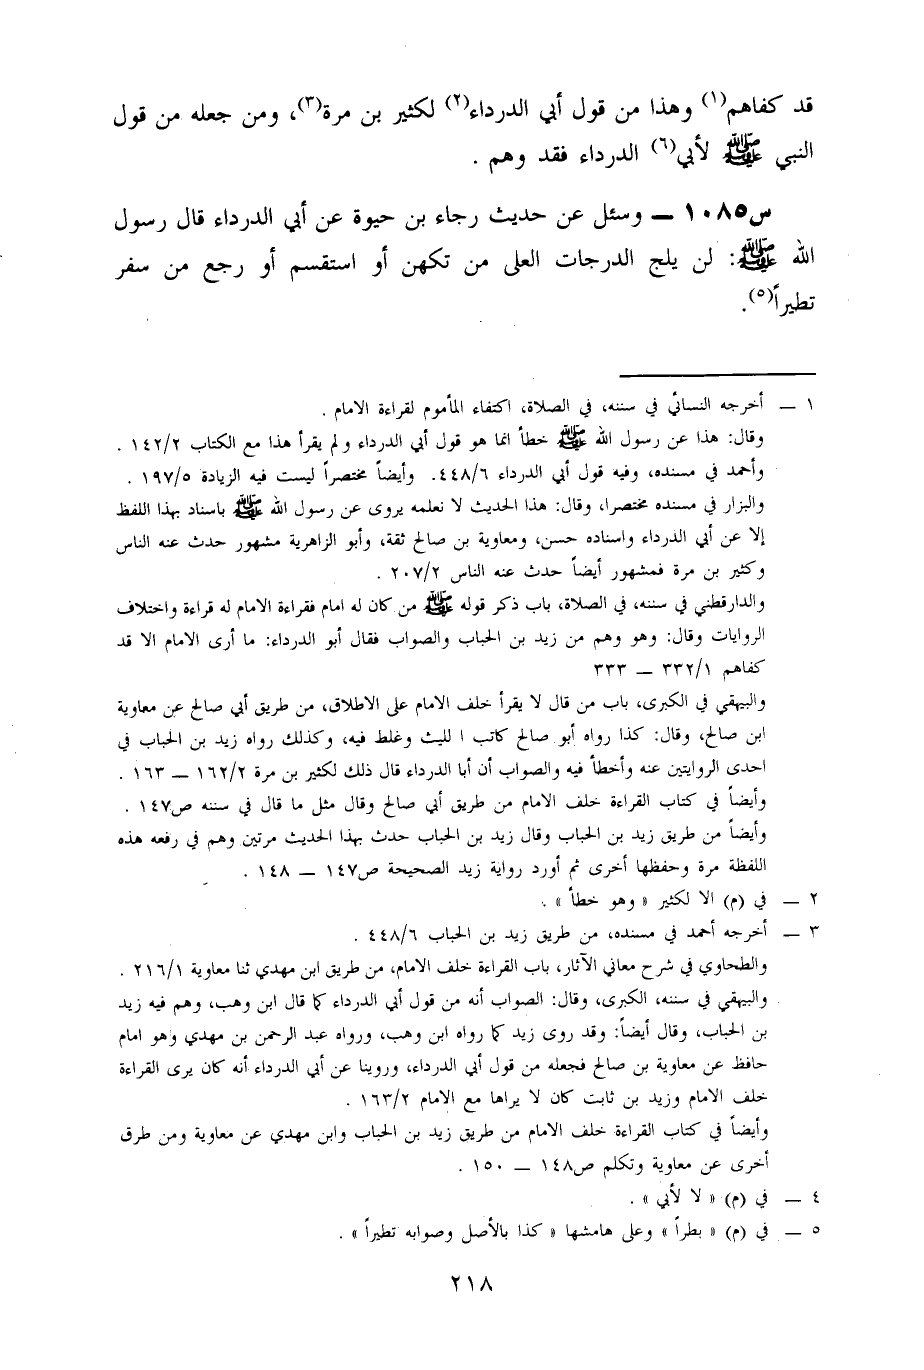 قد كفاهم(١) وهذا من قول أبي الدرداء(٢) لكثير بن مرة(٣)، ومن جعله من قول
النبي ﷺ لأبي(٦) الدرداء فقد وهم .
س١٠٨٥ – وسئل عن حديث رجاء بن حيوة عن أبي الدرداء قال رسول
الله ﷺ: لن يلج الدرجات العلى من تكهن أو استقسم أو رجع من سفر
تطيراً(٥).
١ – أخرجه النسائي في سننه، في الصلاة، اكتفاء المأموم لقراءة الامام .
وقال: هذا عن رسول الله ﷺ خطأ انما هو قول أبي الدرداء ولم يقرأ هذا مع الكتاب ١٤٢/٢ .
وأحمد في مسنده، وفيه قول أبي الدرداء ٤٤٨/٦. وأيضاً مختصراً ليست فيه الزيادة ١٩٧/٥ .
والبزار في مسنده مختصرا، وقال: هذا الحديث لا نعلمه يروى عن رسول الله ﷺ باسناد بهذا اللفظ
إلا عن أبي الدرداء واسناده حسن، ومعاوية بن صالح ثقة، وأبو الزاهرية مشهور حدث عنه الناس
وكثير بن مرة فمشهور أيضاً حدث عنه الناس ٢٠٧/٢ .
والدارقطني في سننه، في الصلاة، باب ذكر قوله ﷺ من كان له امام فقراءة الامام له قراءة واختلاف
الروايات وقال: وهو وهم من زيد بن الحباب والصواب فقال أبو الدرداء: ما أرى الامام الا قد
كفاهم ٣٣٢/١ – ٣٣٣
والبيهقي في الكبرى، باب من قال لا يقرأ خلف الامام على الاطلاق، من طريق أبي صالح عن معاوية
ابن صالح، وقال: كذا رواه أبو صالح كاتب ا لليث وغلط فيه، وكذلك رواه زيد بن الحباب في
احدى الروايتين عنه وأخطأ فيه والصواب أن أبا الدرداء قال ذلك لكثير بن مرة ١٦٢/٢ – ١٦٣ .
وأيضاً في كتاب القراءة خلف الامام من طريق أبي صالح وقال مثل ما قال في سننه ص١٤٧ .
وأيضاً من طريق زيد بن الحباب وقال زيد بن الحباب حدث بهذا الحديث مرتين وهم في رفعه هذه
اللفظة مرة وحفظها أخرى ثم أورد رواية زيد الصحيحة ص١٤٧ – ١٤٨ .
٢ – في (م) الا لكثير « وهو خطأ » .
٣ – أخرجه أحمد في مسنده، من طريق زيد بن الحباب ٤٤٨/٦ .
والطحاوي في شرح معاني الآثار، باب القراءة خلف الامام، من طريق ابن مهدي ثنا معاوية ٢١٦/١ .
والبيهقي في سننه، الكبرى، وقال: الصواب أنه من قول أبي الدرداء كما قال ابن وهب، وهم فيه زيد
بن الحباب، وقال أيضاً: وقد روى زيد كما رواه ابن وهب، ورواه عبد الرحمن بن مهدي وهو امام
حافظ عن معاوية بن صالح فجعله من قول أبي الدرداء، وروينا عن أبي الدرداء أنه كان يرى القراءة
خلف الامام وزيد بن ثابت كان لا يراها مع الامام ١٦٣/٢ .
وأيضاً في كتاب القراءة خلف الامام من طريق زيد بن الحباب وابن مهدي عن معاوية ومن طرق
أخرى عن معاوية وتكلم ص١٤٨ – ١٥٠ .
٤ – في (م) « لا لأبي » .
٥ – في (م) « بطراً » وعلى هامشها « كذا بالأصل وصوابه تطيراً » .
٢١٨